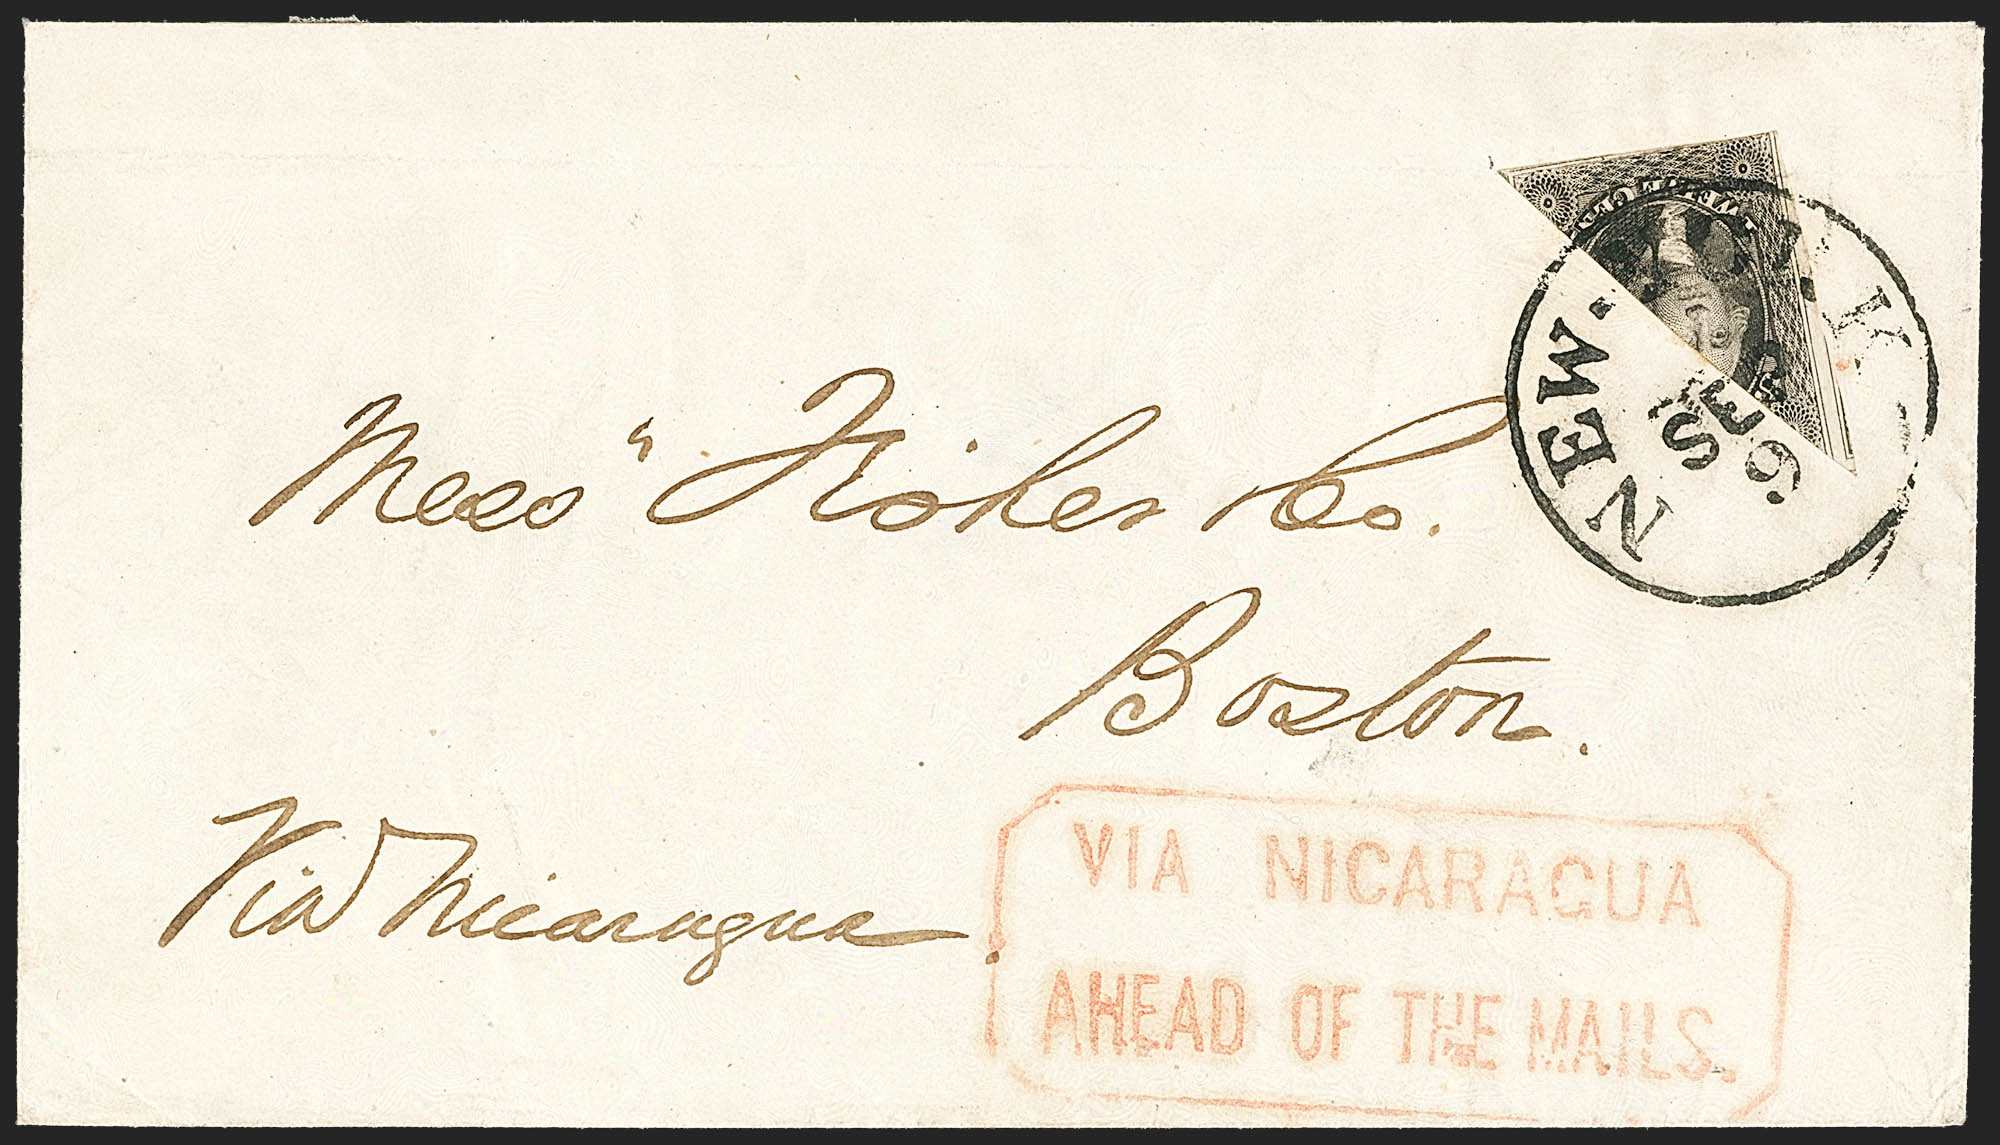 TWELVE CE
NEW. YORK
SEP
6
Mess" Fisher & Co.
Boston.
Via Nicaragua.
VIA NICARAGUA
AHEAD OF THE MAILS.